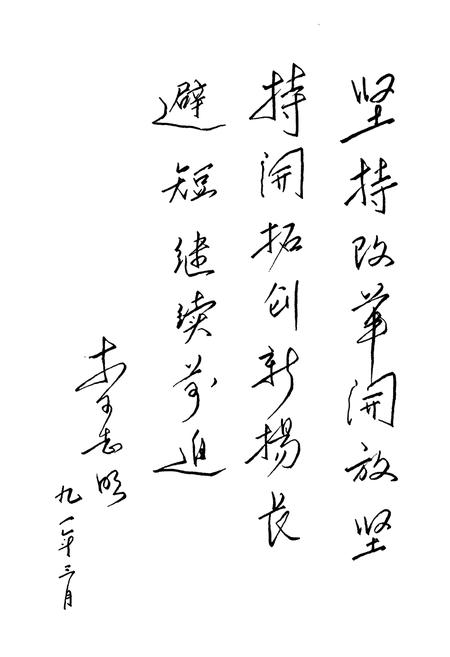 坚持改革開放坚
持開拓创新揚长
避短继续前進
李志明
九一年三月